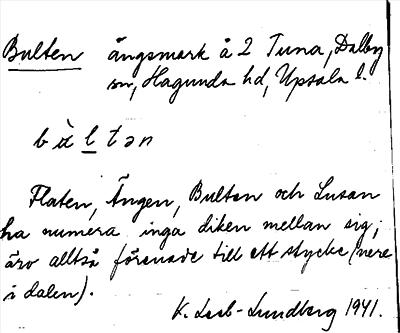 Bulten ängsmark å 2 Tuna, Dalby
sn, Hagunda hd, Upsala l.
bùltən
Flaten, Ängen, Bulten och Lusan
ha numera inga diken mellan sig;
äro alltså förenade till ett stycke (nere
i dalen).
K. Leeb-Lundberg 1941.